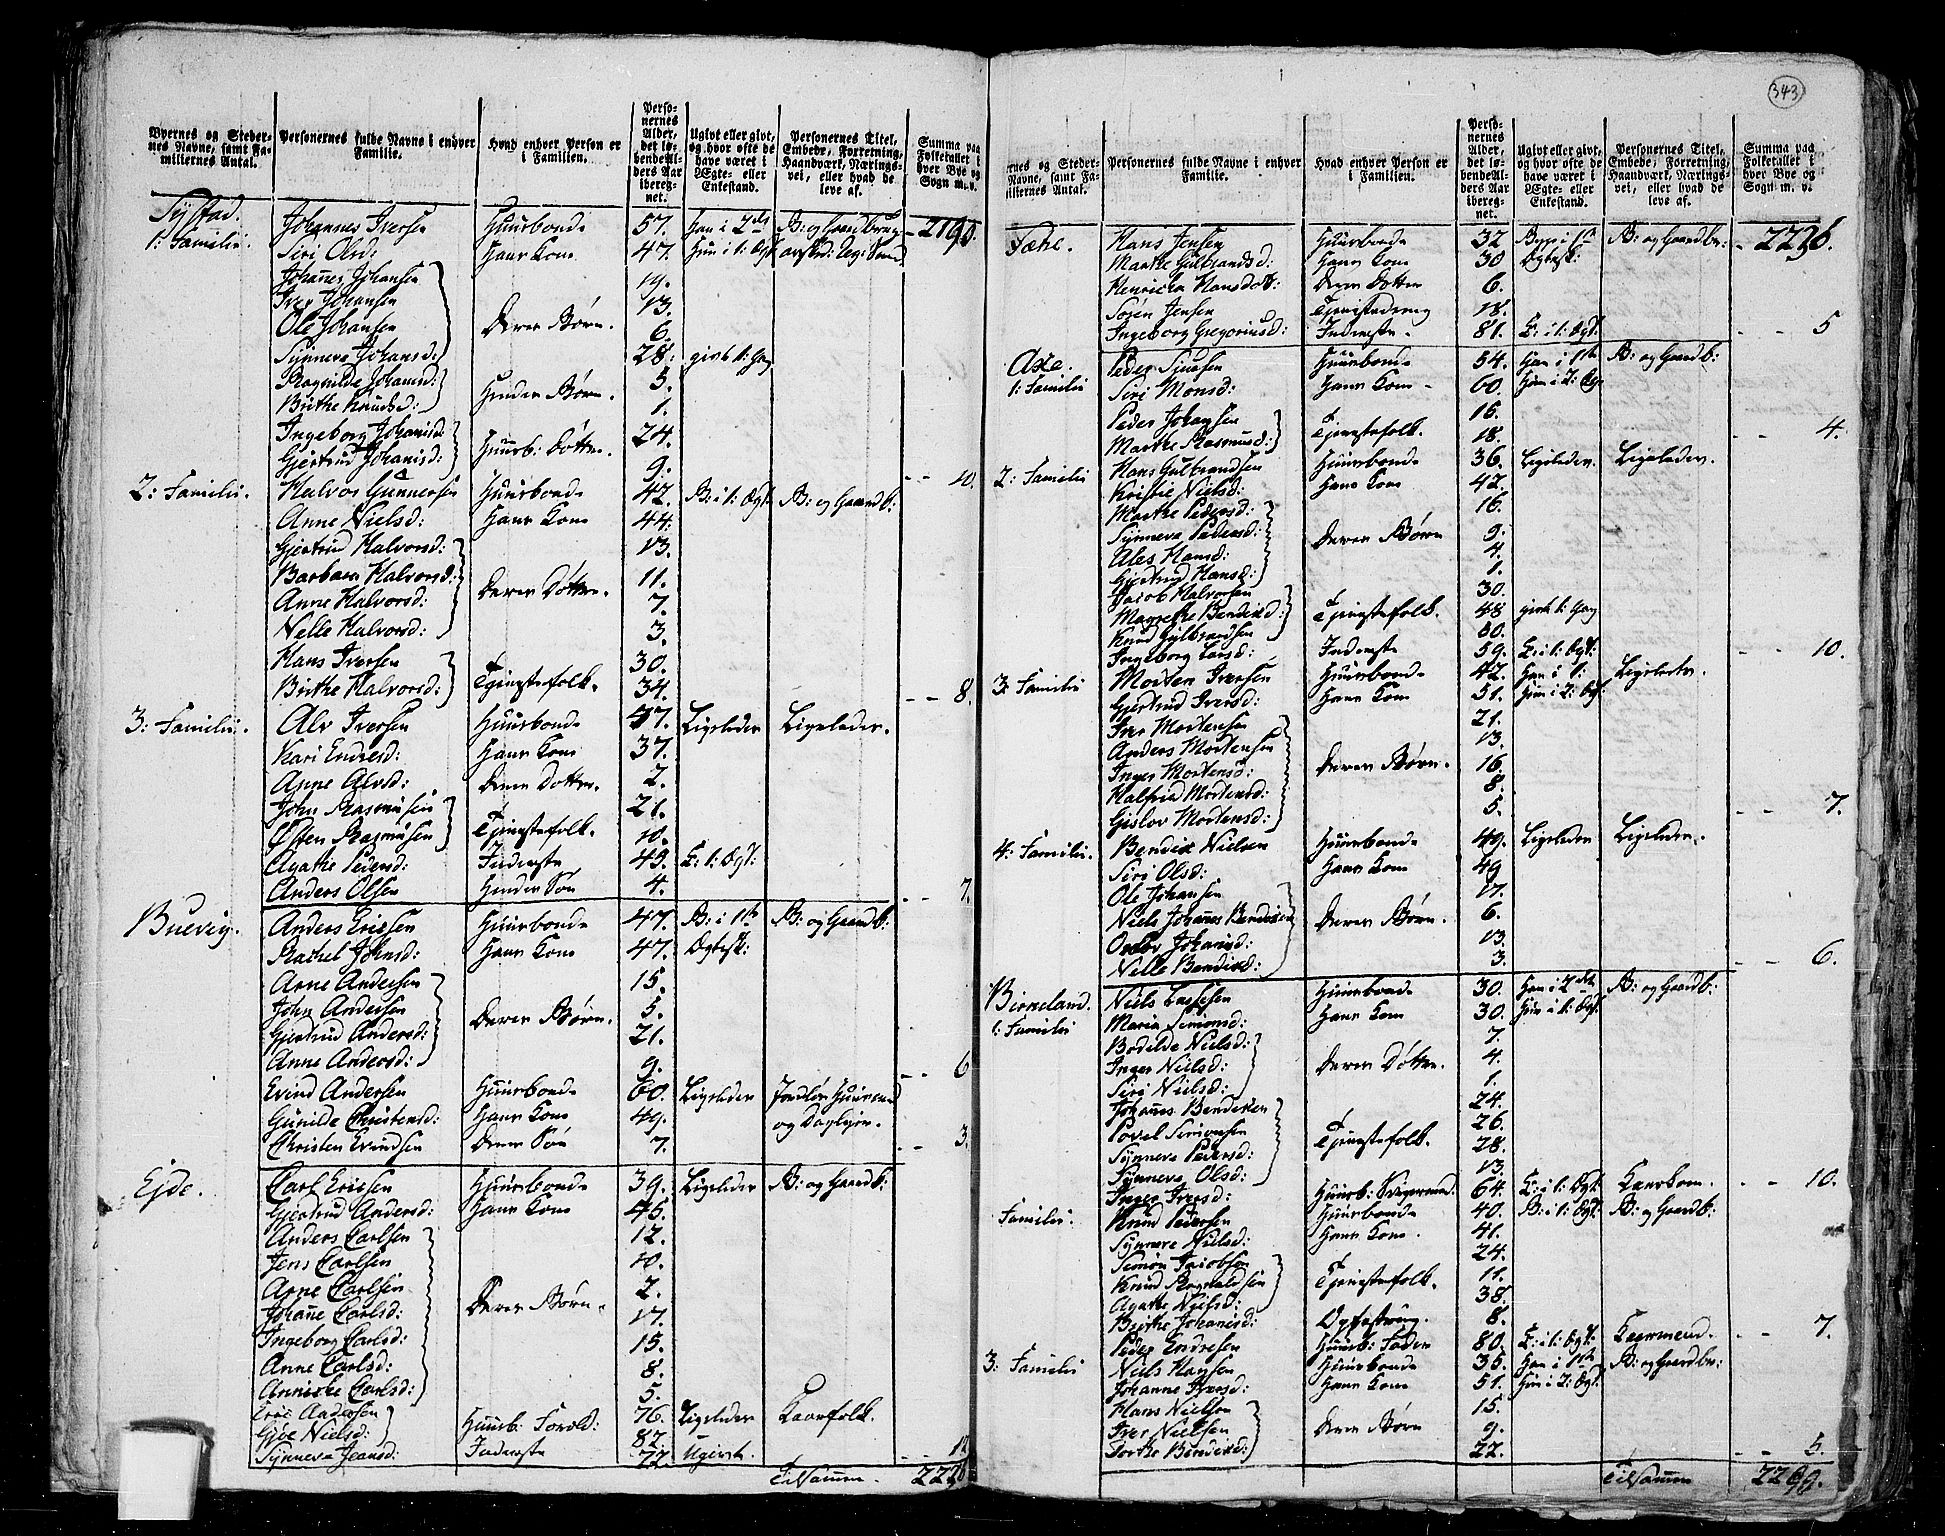 343
Byernes og Steder-
nes Navne, samt Fa-
miliernes Antal.
Personernes fulde Navne i enhver
Familie.
Hvad enhver Person er
i Familien.
Perso-
nernes
Alder,
det lø-
bende Al-
ders Aar
ibereg-
net.
Ugivt eller givt,
og hvor ofte de
have været i
Egte- eller
Enkestand.
Personernes Titel,
Embede, Forretning,
Haandværk, Nærings-
vei, eller hvad de
leve af.
Summa paa
Folketallet i
hver Bye og
Sogn m. v.
Sylstad. Johannes Iversen Huusbonde 57. Han i 2den B: og Gaardbrug 2190.
1: Familie. Siri Olsd: Hans Kone 47. Hun i 1: Ægt
Johannes Johansen 19.
Iver Johansen 13.
Ole Johansen Deres Børn. 6.
Synneva Johansd: 28. givt 1: Gang
Ragnilde Johansd: 5.
Birthe Knudsd: Hendes Børn. 1.
Ingeborg Johanisd: Huusb: Døttre. 24.
Gjertrud Johanisd: 9. 10.
2: Familie. Halvor Gunnersen Huusbonde 42. B: i 1: Ægt: B: og Gaardb:
Anne Nielsd: Hans Kone 44.
Gjertrud Halvorsd: 13.
Barbara Halvorsd: 11.
Anne Halvorsd: Deres Døttre. 7.
Nelle Halvorsd: 3.
Hans Iversen 30.
Birthe Halvorsd: Tjenestefolk. 34. 8.
3: Familie. Alv Iversen Huusbonde 47. Ligeledes Ligeledes.
Kari Endresd: Hans Kone 37.
Anne Alvsd: Deres Dotter. 2.
John Rasmusen 21.
Østen Rasmusen Tjenestefolk. 10.
Agathe Pedersd: Inderste 45. E: 1: Ægt:
Anders Olsen Hendes Søn 4. 7.
Buevig. Anders Ericsen Huusbonde 47. B: i 1ste B: og Gaardb:
Rachel Johnsd: Hans Kone 47. Ægtesk:
Arne Andersen 15.
John Andersen Deres Børn. 5.
Gjertrud Andersd: 21.
Anne Andersd: 9. 6
Evind Andersen Huusbonde 60. Ligeledes Jordløs Huusmand
Gunilde Christensd: Hans Kone 49. og Daglejer.
Christen Evindsen Deres Søn 7. 3.
Ejde. Carl Ericsen Huusbonde 39. Ligeledes B: og Gaardb:
Gjertrud Andersd: Hans Kone 46.
Anders Carlsen 12.
Jens Carlsen 10.
Arne Carlsen 2.
Johanne Carlsd: Deres Børn. 17.
Ingeborg Carlsd: 15.
Anne Carlsd: 8.
Annicke Carlsd: 5.
Eric Andersen 76. Ligeledes Kaarfolk.
Gjøe Nielsd: Huusb: Foreld: 82.
Synneva Jeansd: Inderste 77. Ugivt. 12
Tilsammen. 2236
rnes og Steder-
Navne, samt Fa-
iliernes Antal.
Personernes fulde Navne i enhver
Familie.
Hvad enhver Person er
i Familien.
Perso-
nernes
Alder,
det lø-
bende Al-
ders Aar
ibereg-
net.
Ugivt eller givt,
og hvor ofte de
have været i
Egte- eller
Enkestand.
Personernes Titel,
Embede, Forretning,
Haandværk, Nærings-
vei, eller hvad de
leve af.
Summa paa
Folketallet i
hver Bye og
Sogn m. v.
Tæhe. Hans Jensen Huusbonde 32 Begge i 1ste B: og Gaardbr: 2236.
Marthe Gulbrandsd: Hans Kone 30 Ægtesk:
Henricha Hansdot: Deres Dotter 6.
Søren Jensen Tjenestedreng 18.
Ingeborg Gregoriusd: Inderste. 81. E: i 1: Ægt. 5
Axe. Peder Sjursen Huusbonde 54. Han i 1ste B: og Gaardb:
1: Familie Siri Monsd: Hans Kone 60. Hun i 2: Æg
Peder Johansen 16.
Marthe Rasmusd: Tjenestefolk. 18. 4.
2: Familie Hans Gulbrandsen Huusbonde 36. Ligeledes. Ligeledes.
Kristie Nielsd: Hans Kone 42.
Marthe Pedersd: 16.
Synneva Pedersd: Deres Børn 9.
Ales Hansd: 4.
Gjertrud Hansd: 1.
Jacob Halvorsen 30.
Magrethe Bendixd: Tjenestefolk. 48 givt 1: Gang
Knud Gulbrandsen 80.
Ingeborg Larsd: Inderste 59. E: i 1: Ægt: 10.
3: Familie Morten Iversen Huusbonde 42. Han i 1: Ligeledes.
Gjertrud Iversd: Hans Kone 51. Hun i 2: Ægt
Iver Mortensen 21.
Anders Mortensen 13.
Inger Mortensd: Deres Børn. 16.
Halfrid Mortensd: 8.
Gislov Mortensd: 5. 7.
4: Familie. Bendix Nielsen Huusbonde 49. Ligeledes Ligeledes.
Siri Olsd: Hans Kone 49
Ole Johansen 17.
Niels Johannes Bendixen Deres Børn. 6.
Oslov Johanisd: 13.
Nelle Bendixd: 3. 6.
Birneland. Niels Lassesen Huusbonde 30. Han i 2den B: og Gaardb:
1: Familie Maria Simonsd: Hans Kone 30. Hun i 1: Ægt.
Bodilde Nielsd: 7.
Inger Nielsd: Deres Døttre. 4.
Siri Nielsd: 1.
Johannes Bendixen 24.
Povel Simonsen 26.
Synneva Pedersd: Tjenestefolk. 28.
Synneva Olsd: 13.
Inger Iversd: Huusb: Svigermod: 64. E: i 1: Ægt: Kaarkone. 10.
Familie. Knud Pedersen Huusbonde 40. B: i 1: Ægt: B: og Gaardb:
Synneve Nielsd: Hans Kone. 41.
Simon Jacobsen 24.
Knud Ragnaldsen Tjenestefolk. 11.
Agathe Nielsd: 38.
Birthe Johanisd: Opfostring. 8.
Peder Endresen Huusb: Fader 80. E: i 1: Ægt: Kaarmand. 7.
3: Familie Niels Hansen Huusbonde 35. Han i 1ste B: og Gaardbr:
Johanne Iversd: Hans Kone 51. Hun i 2: Ægt.
Hans Nielsen 15.
Iver Nielsen Deres Børn 9.
Torthe Bendixd: 22. 5.
Tilsammen 2290.